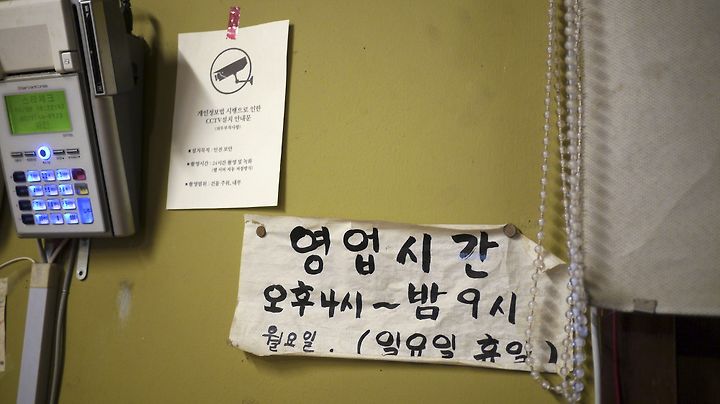 개인정보법 시행으로 인한
CCTV설치 안내문
(외부부착사항)
■ 설치목적 : 안전 보안
■ 촬영시간 : 24시간 촬영 및 녹화
■ 촬영범위 : 건물 주위, 내부
영업시간
오후4시~밤9시
월요일. (일요일 휴일)